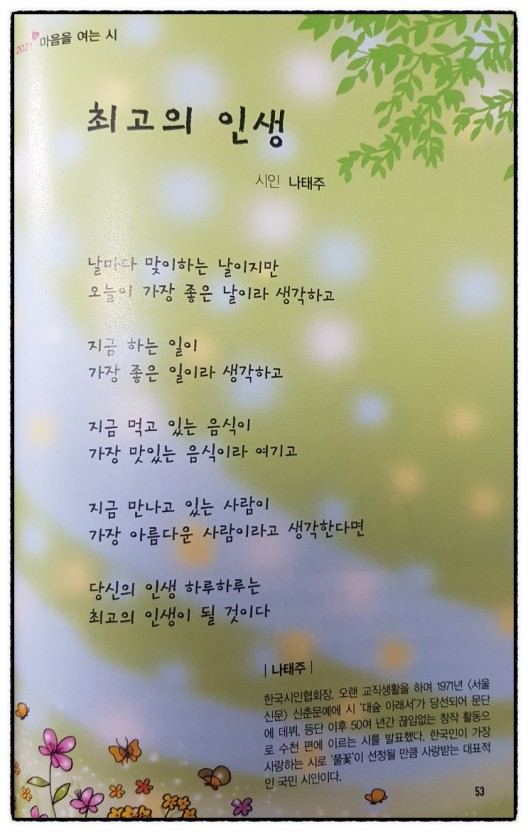 2021 마음을 여는 시
최고의 인생
시인 나태주
날마다 맞이하는 날이지만
오늘이 가장 좋은 날이라 생각하고
지금 하는 일이
가장 좋은 일이라 생각하고
지금 먹고 있는 음식이
가장 맛있는 음식이라 여기고
지금 만나고 있는 사람이
가장 아름다운 사람이라고 생각한다면
당신의 인생 하루하루는
최고의 인생이 될 것이다
| 나태주 |
한국시인협회장, 오랜 교직생활을 하며 1971년 〈서울
신문〉 신춘문예에 시 '대숲 아래서'가 당선되어 문단
에 데뷔, 등단 이후 50여 년간 끊임없는 창작 활동으
로 수천 편에 이르는 시를 발표했다. 한국인이 가장
사랑하는 시로 '풀꽃'이 선정될 만큼 사랑받는 대표적
인 국민 시인이다.
53